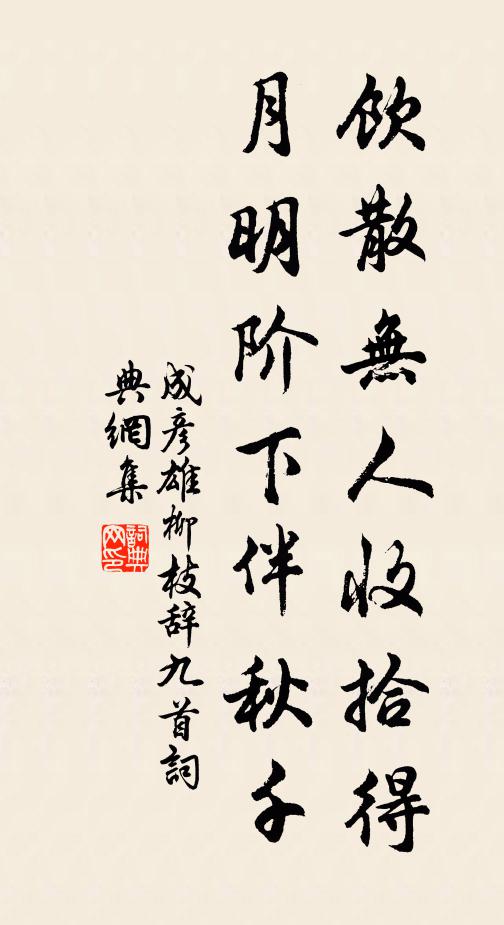 饮散無人收拾得
月明阶下伴秋千
成彦雄柳枝辞九首詞
典網集
詞典
网印